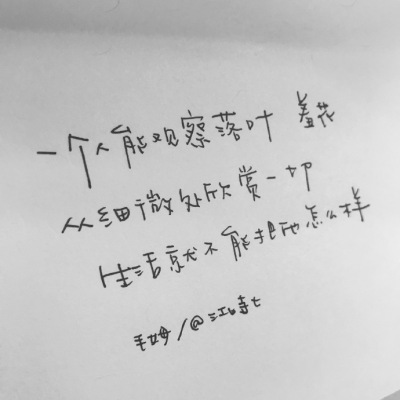 一个人能观察落叶 羞花
从细微处欣赏一切
生活就不能把他怎么样
毛姆/@